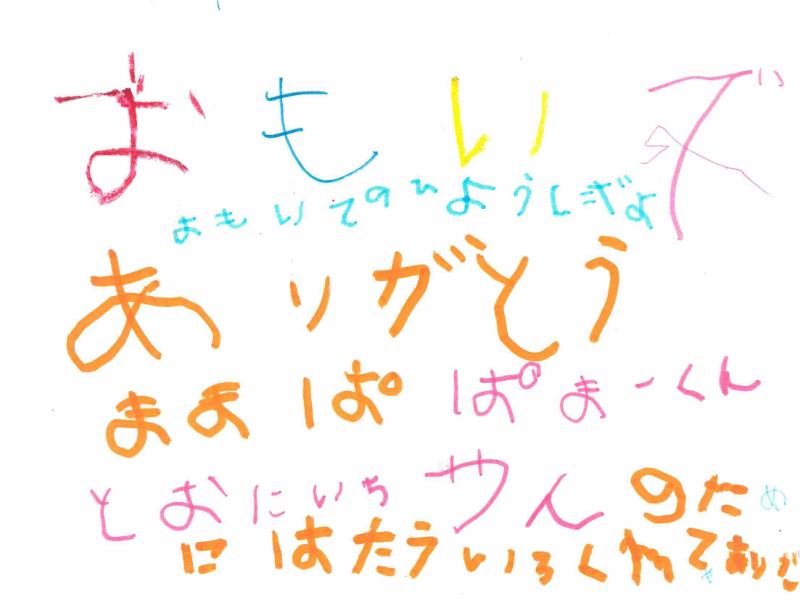 おもいで
おもいでのひようしぎよ
ありがとう
ままぱぱまーくん
とおにいちやんのため
にはたういろくれてありが